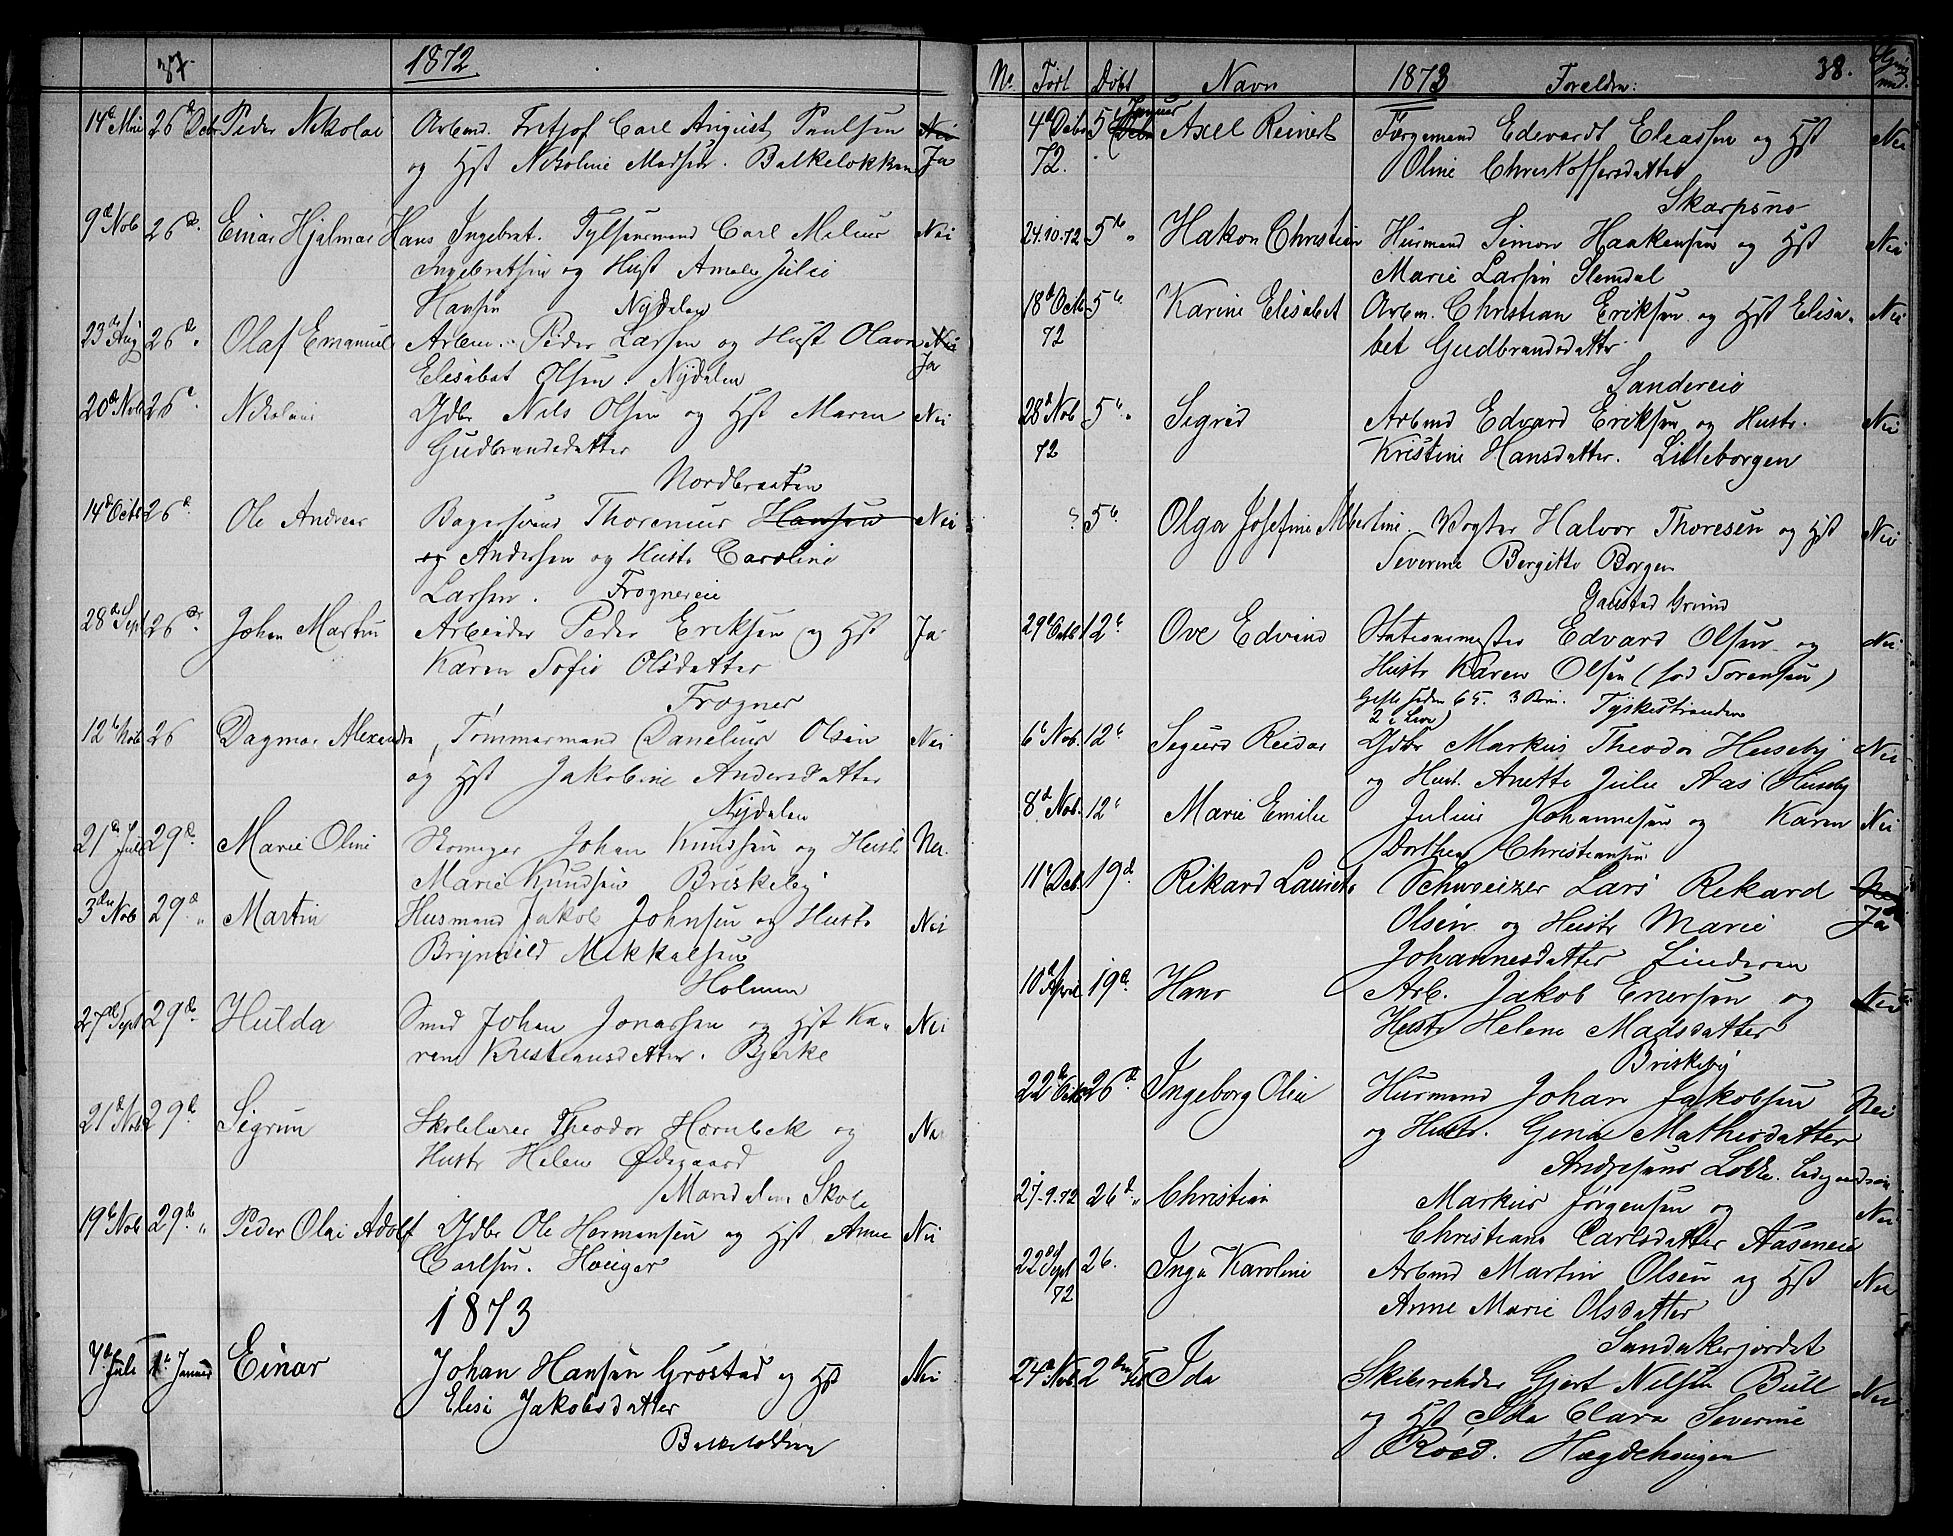 37. 1872
14d Mai 26d Decbr Peder Nikolai Arbmd. Fretjof Carl August Paulsen Nei
og Hst Nikoline Madsen. Balkeløkken Ja
9d Nob 26d. Einar Hjalmar Hans Ingebrat. Carl Melius Nei
Ingebratsen og Hust Amalie Julie
Hansen Nydalen
23d Aug 26d. Olaf Emanuel Arbm. Peder Larsen og Hust Olava Nei
Elisabet Olsen. Nydalen Ja
20d Nob 26d. Nikolai Gdbr Nils Olsen og Hst Maren Nei
Gudbrandsdatter
Nordbraaten
14d Octb 26d. Ole Andreas Bagersvend Thorenius Hansen Nei
og Andersen og Hustr Caroline
Larsen. Frognereie
28d Sept 26d. Johan Martin Arbeider Peder Eriksen og Hst Ja
Karen Sofie Olsdatter
Frogner
12t Nob 26 Dagmar Alexandra Tømmermand Danelius Olsen Nei
og Hst Jakobine Andersdatter
Nydalen
21d Juli 29d. Marie Oline Skomager Johan Knudsen og Hustr Nei.
Marie Knudsen Briskeby
3die Nob 29d. Martin Husmand Jakob Johnsen og Hustr Nei
Brynhild Mekkalsen
Holmen
27d Sept 29d. Hulda Smed Johan Jonassen og Hst Ka-
ren Kristiansdatter. Bjerke Nei
21d Nob 29d. Sigrun Skolelærer Theodor Hornbek og Nei
Hustr Helene Ødegaard
Maridalens Skole
19t Nob 29d. Peder Olai Adolf Gdbr Ole Hermansen og Hst Anne Nei
Carlsen. Houger
1873
7d Juli 1t Januar Einar Johan Hansen Grøstad og Hst Nei
Elise Jakobsdatter
Balkeløkken
No Født Døbt Navn 1873 Foreldre: 38.
4d Decbr 5 Januar Axel Reinert Færgemand Edevardt Eleassen og Hst Nei
72. Oline Christoffersdatter
Skarpsno
24.10.72 5te " Hakon Christian Husmand Simon Haakensen og Hst Nei
Marie Larsen Slemdal
18d Octb 5te Karine Elisabet Arbm. Christian Eriksen og Hst Elisa- Nei
72 bet Gudbrandsdatter
Sandereie
28d Nob 5te. Sigrid Arbmd Edvard Eriksen og Hustr. Nei
72 Kristine Hansdatter. Lilleborgen
? 5te. Olga Josefine Albertine. Vogter Halvor Thoresen og Hst Nei
Severine Bergitte Borgen
Gaustad Grund
29d Octb 12te Ove Edvind Stationsmester Edvard Olsen og Nei
Hustr Karen Olsen (fød Sørensen)
Gifte siden 65. 3 Børn. Tyskestranden
2 i Live)
6t Nob. 12te Sigurd Reidar Gdbr Markus Theodor Huseby Nei
og Hust. Anette Julie Aas Huseby
8d Nob. 12te Marie Emilie Julius Johannesen og Karen Nei
Dorthea Christiansen
11t Octb. 19d. Rikard Laurits Schweizer Lars Rekard Nei
Olsen og Hustr Marie Ja
Johannesdatter Linderen
10d April 19d. Hans Arb. Jakob Enersen og Nei
Hustr Helene Madsdatter
Briskeby
22d Octb 26d Ingeborg Oline Husmand Johan Jakobsen Nei
og Hustr. Gina Mathisdatter
Andresens Løkke.
27.9.72 26d. Christian Markus Jørgensen og Nei
Christiane Carlsdatter Aaseneie
22d Sept 26. Inga Karoline Arbmd Martin Olsen og Hst Nei
72 Anne Marie Olsdatter
Sandakerjordet
24d Nob. 2den Feb Ida Skibsreder Gjert Nelsen Bull Nei
og Hst Ida Clara Severine
Røed. Hægdehougen